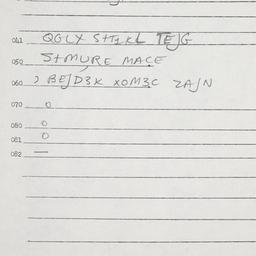 041 QGLY STTIKL TEJG
050 StMURE MACE
060 ) BEJD3K XOM3C ZAJN
070 0
080 0
081 0
082 —